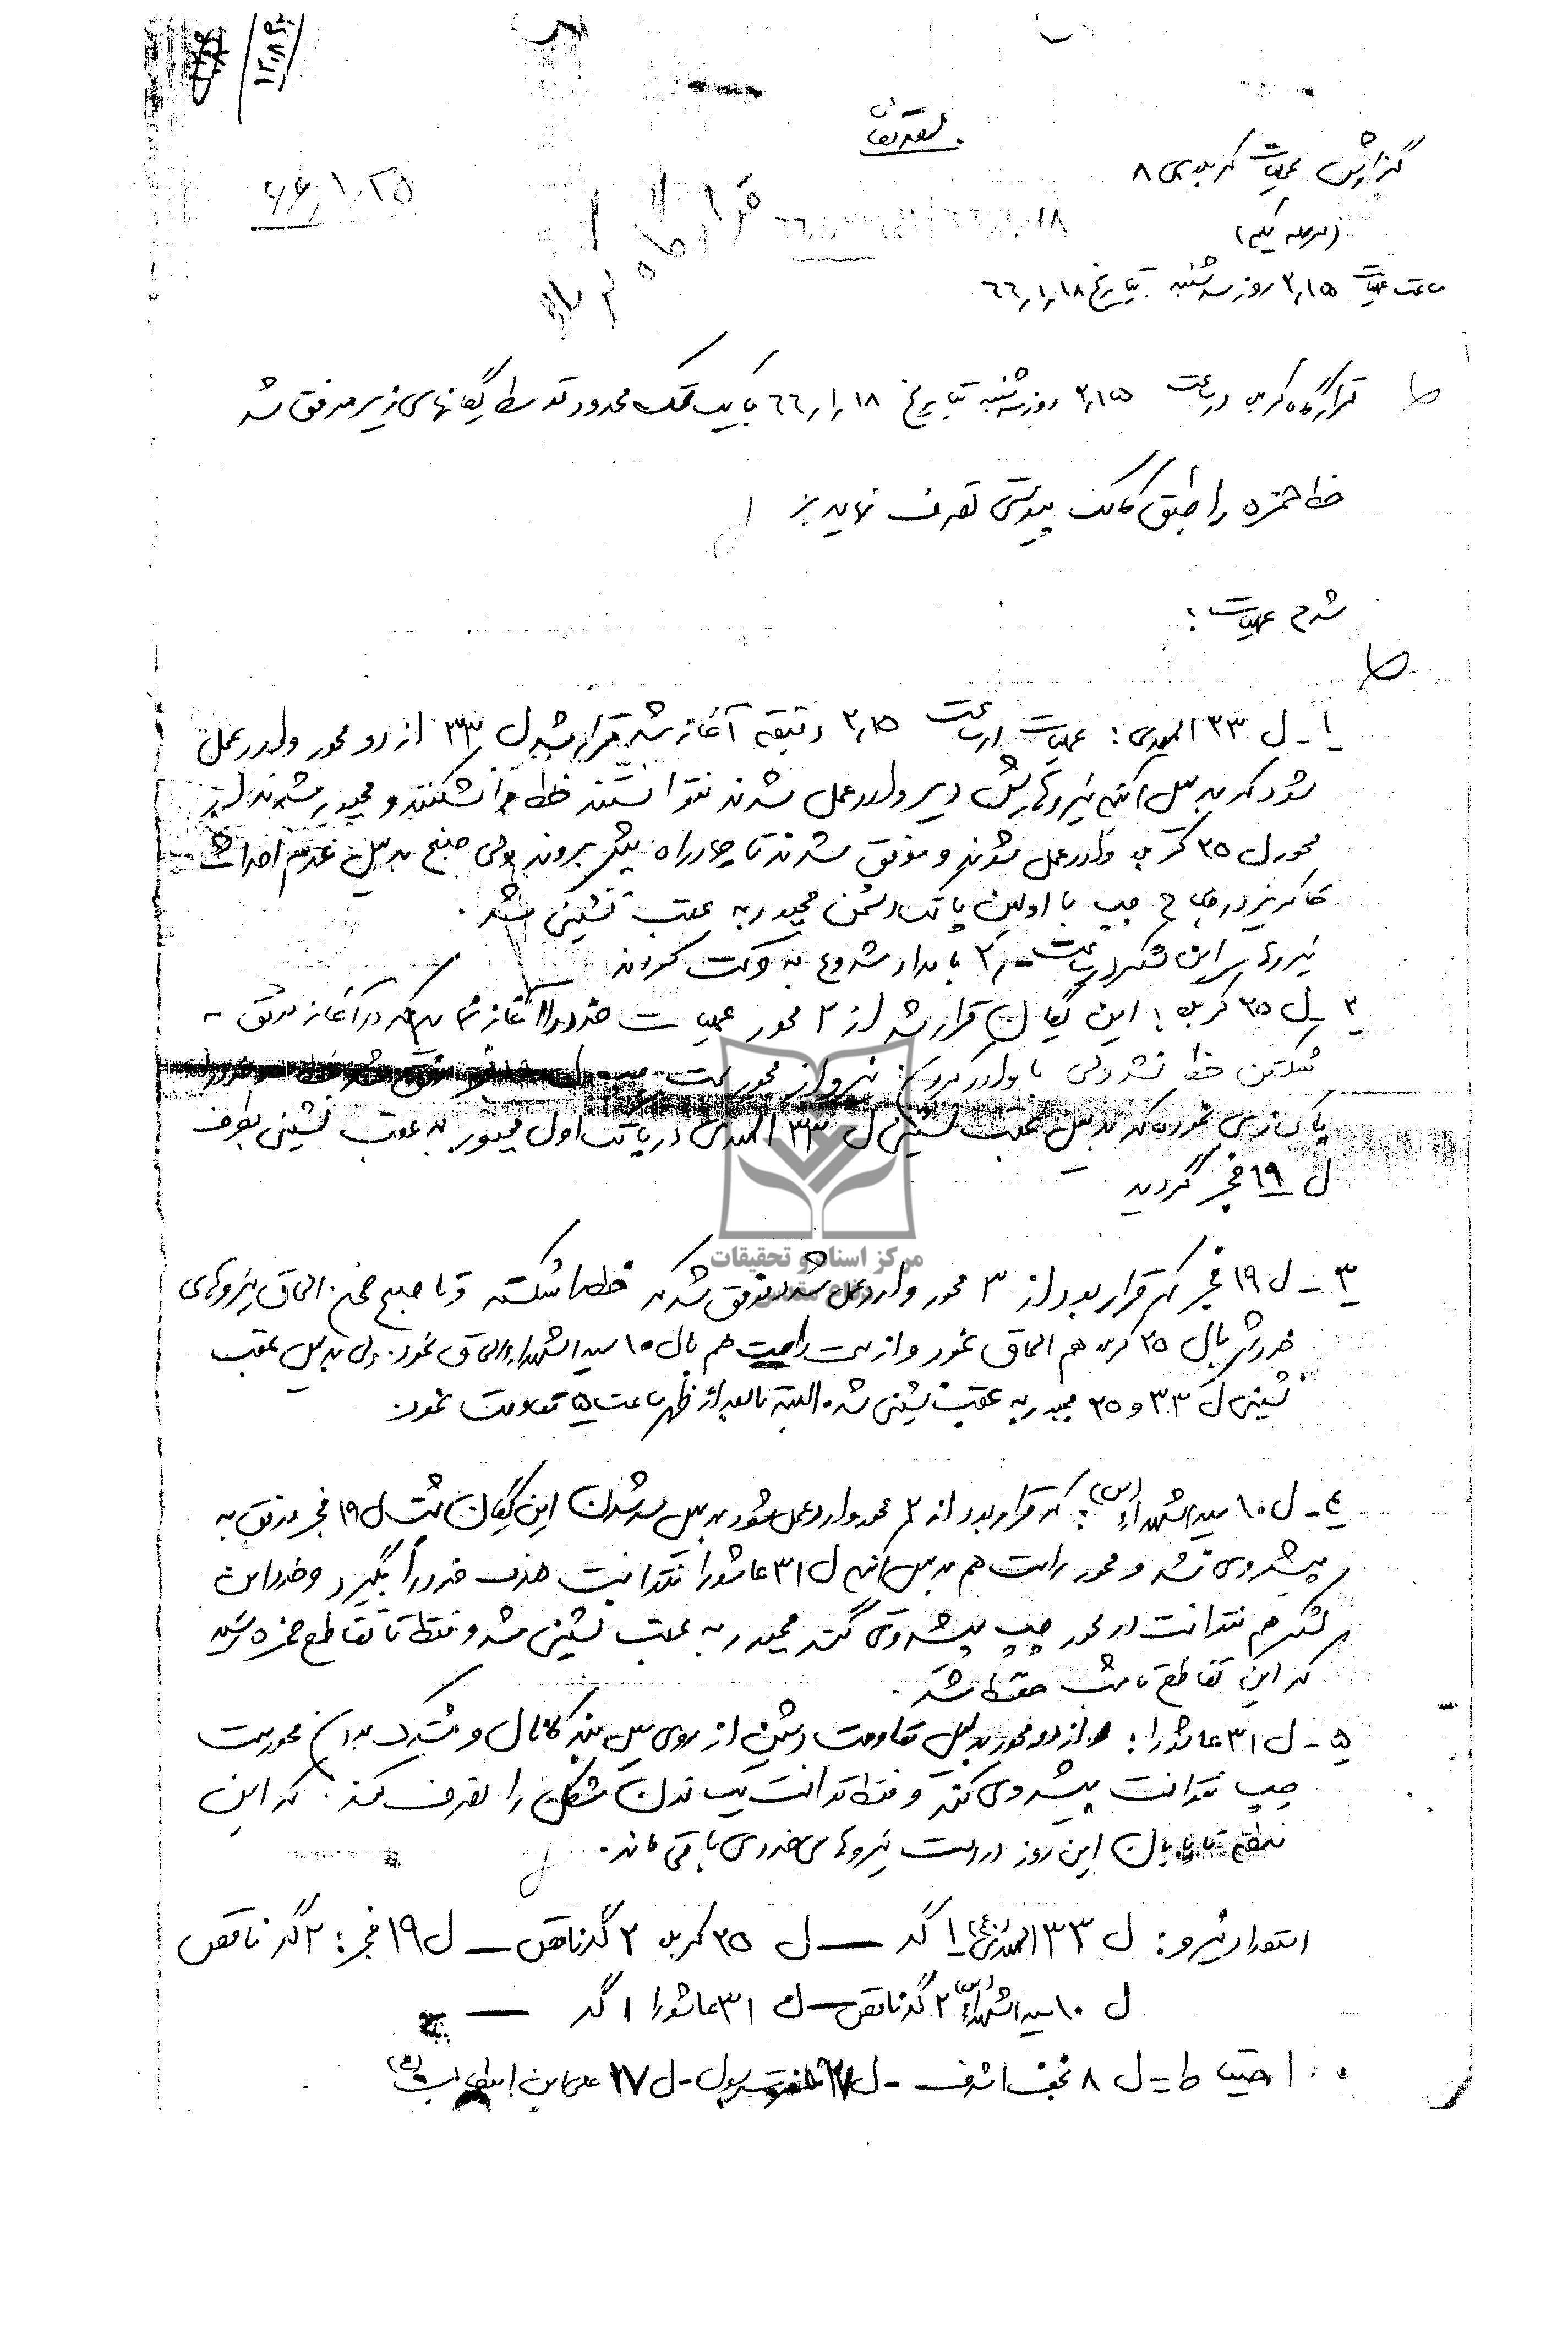 بسمه تعالی
گزارش عملیات کربلای ۸
(مرحله یکم)
۶۶٫۱٫۲۵
ساعت عملیات ۲٫۱۵ روز سه شنبه بتاریخ ۶۶٫۱٫۱۸
قرارگاه کربلا در ساعت ۲٫۱۵ روز سه شنبه بتاریخ ۶۶٫۱٫۱۸ با یک تک محدود توسط یگانهای زیر موفق شد
خط حمزه را طبق کالک پیوستی تصرف نماید
شرح عملیات:
۱ـ ل ۳۳ المهدی: عملیات در ساعت ۲٫۱۵ دقیقه آغاز شد قرار شد ل ۳۳ از دو محور وارد عمل
شود که بدلیل اینکه نیروهایش دیر وارد عمل شدند نتوانستند خط را بشکنند و مجبور شدند از
محور ل ۳۵ کربلا وارد عمل شوند و موفق شدند تا چهارراه پیش بروند ولی صبح بدلیل عدم احداث
خاکریز در جناح چپ با اولین پاتک دشمن مجبور به عقب نشینی شد.
نیروهای این لشکر در ساعت ۲٫ بامداد شروع به حرکت کردند
۲ـ ل ۳۵ کربلا: این یگان قرار شد از ۲ محور عملیات خود را آغاز نماید که در آغاز موفق به
شکستن خط نشد ولی با وارد کردن نیرو از محور سمت
پاکسازی نموده که بدلیل عقب نشینی ل ۳۳ المهدی در پاتک اول مجبور به عقب نشینی بطرف
ل ۱۹ فجر گردید
مرکز اسناد و تحقیقات
دفاع مقدس
۳ـ ل ۱۹ فجر که قرار بود از ۳ محور وارد عمل شود موفق شد که خط را شکسته و تا صبح ضمن الحاق نیروهای
خودش با ل ۳۵ کربلا هم الحاق نمود و از سمت راست هم با ل ۱۰ سیدالشهداء الحاق نمود. ولی بدلیل عقب
نشینی ل ۳۳ و ۳۵ مجبور به عقب نشینی شد. البته تا بعد از ظهر ساعت ۵ مقاومت نمود.
۴ـ ل ۱۰ سیدالشهداء (س): که قرار بود از ۲ محور وارد عمل شود بدلیل سد شدن این یگان پشت ل ۱۹ فجر موفق به
پیشروی نشد و محور راست هم بدلیل اینکه ل ۳۱ عاشورا نتوانست هدف خود را بگیرد و خود این
لشکر هم نتوانست در محور چپ پیشروی کند مجبور به عقب نشینی شد و فقط تا تقاطع حمزه رسید
که این تقاطع تا شب حفظ شد.
۵ـ ل ۳۱ عاشورا: از دو محور بدلیل مقاومت دشمن از روی سیل بند کانال و مشترک بودن محور سمت
چپ نتوانست پیشروی کند و فقط توانست یک نونی شکل را تصرف کند. که این
منطقه تا پایان این روز در دست نیروهای خودی باقی ماند.
استعداد نیرو: ل ۳۳ المهدی (عج) ۱ گد ـ ل ۳۵ کربلا ۲ گد ناقص ـ ل ۱۹ فجر: ۲ گد ناقص
ل ۱۰ سیدالشهداء (س) ۲ گد ناقص ـ ل ۳۱ عاشورا ۱ گد ـ
احتیاط ـ ل ۸ نجف اشرف ـ ل ۲۷ حضرت رسول ـ ل ۱۷ علی ابن ابیطالب (ع)